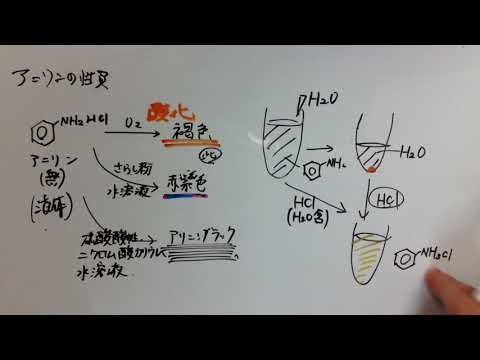 アニリンの性質
酸化
NH2 HCl
O2
褐色
アニリン
(無)
(液体)
さらし粉
水溶液
赤紫色
硫酸酸性
ニクロム酸カリウム
水溶液
アニリンブラック
H2O
NH2
H2O
HCl
(H2O含)
HCl
NH3Cl